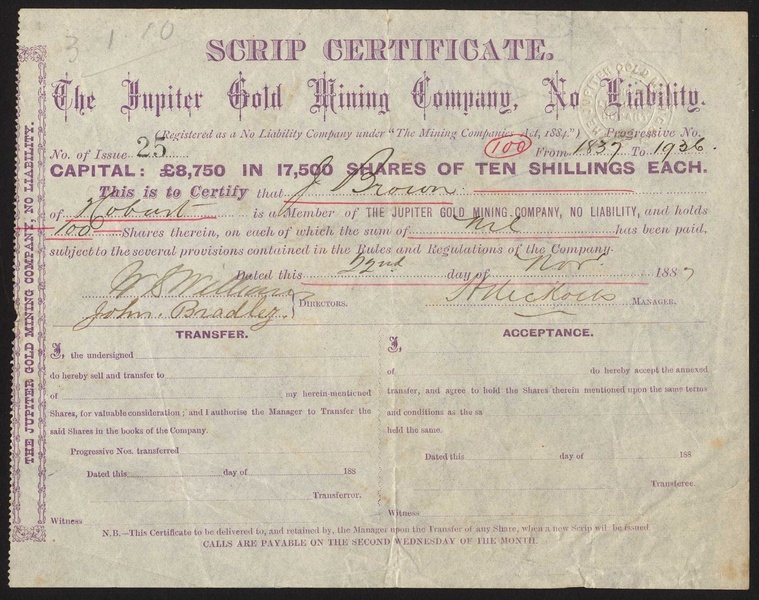 3 1 10
SCRIP CERTIFICATE.
The Jupiter Gold Mining Company, No Liability.
(Registered as a No Liability Company under "The Mining Companies Act, 1884.") Progressive No.
No. of Issue 25 100 From 1837 To 1936.
CAPITAL: £8,750 IN 17,500 SHARES OF TEN SHILLINGS EACH.
This is to Certify that J Brown
of Hobart is a Member of THE JUPITER GOLD MINING COMPANY, NO LIABILITY, and holds
100 Shares therein, on each of which the sum of Nil has been paid,
subject to the several provisions contained in the Rules and Regulations of the Company.
Dated this 22nd day of Nov. 1887
John Bradley. DIRECTORS. MANAGER.
THE JUPITER GOLD MINING COMPANY, NO LIABILITY.
TRANSFER.
I, the undersigned
do hereby sell and transfer to
of my herein-mentioned
Shares, for valuable consideration; and I authorise the Manager to Transfer the
said Shares in the books of the Company.
Progressive Nos. transferred
Dated this day of 188
Transferror.
Witness
ACCEPTANCE.
I,
of do hereby accept the annexed
transfer, and agree to hold the Shares therein mentioned upon the same terms
and conditions as the sa
held the same.
Dated this day of 188
Transferee.
Witness
N.B.—This Certificate to be delivered to, and retained by, the Manager upon the Transfer of any Share, when a new Scrip will be issued
CALLS ARE PAYABLE ON THE SECOND WEDNESDAY OF THE MONTH.